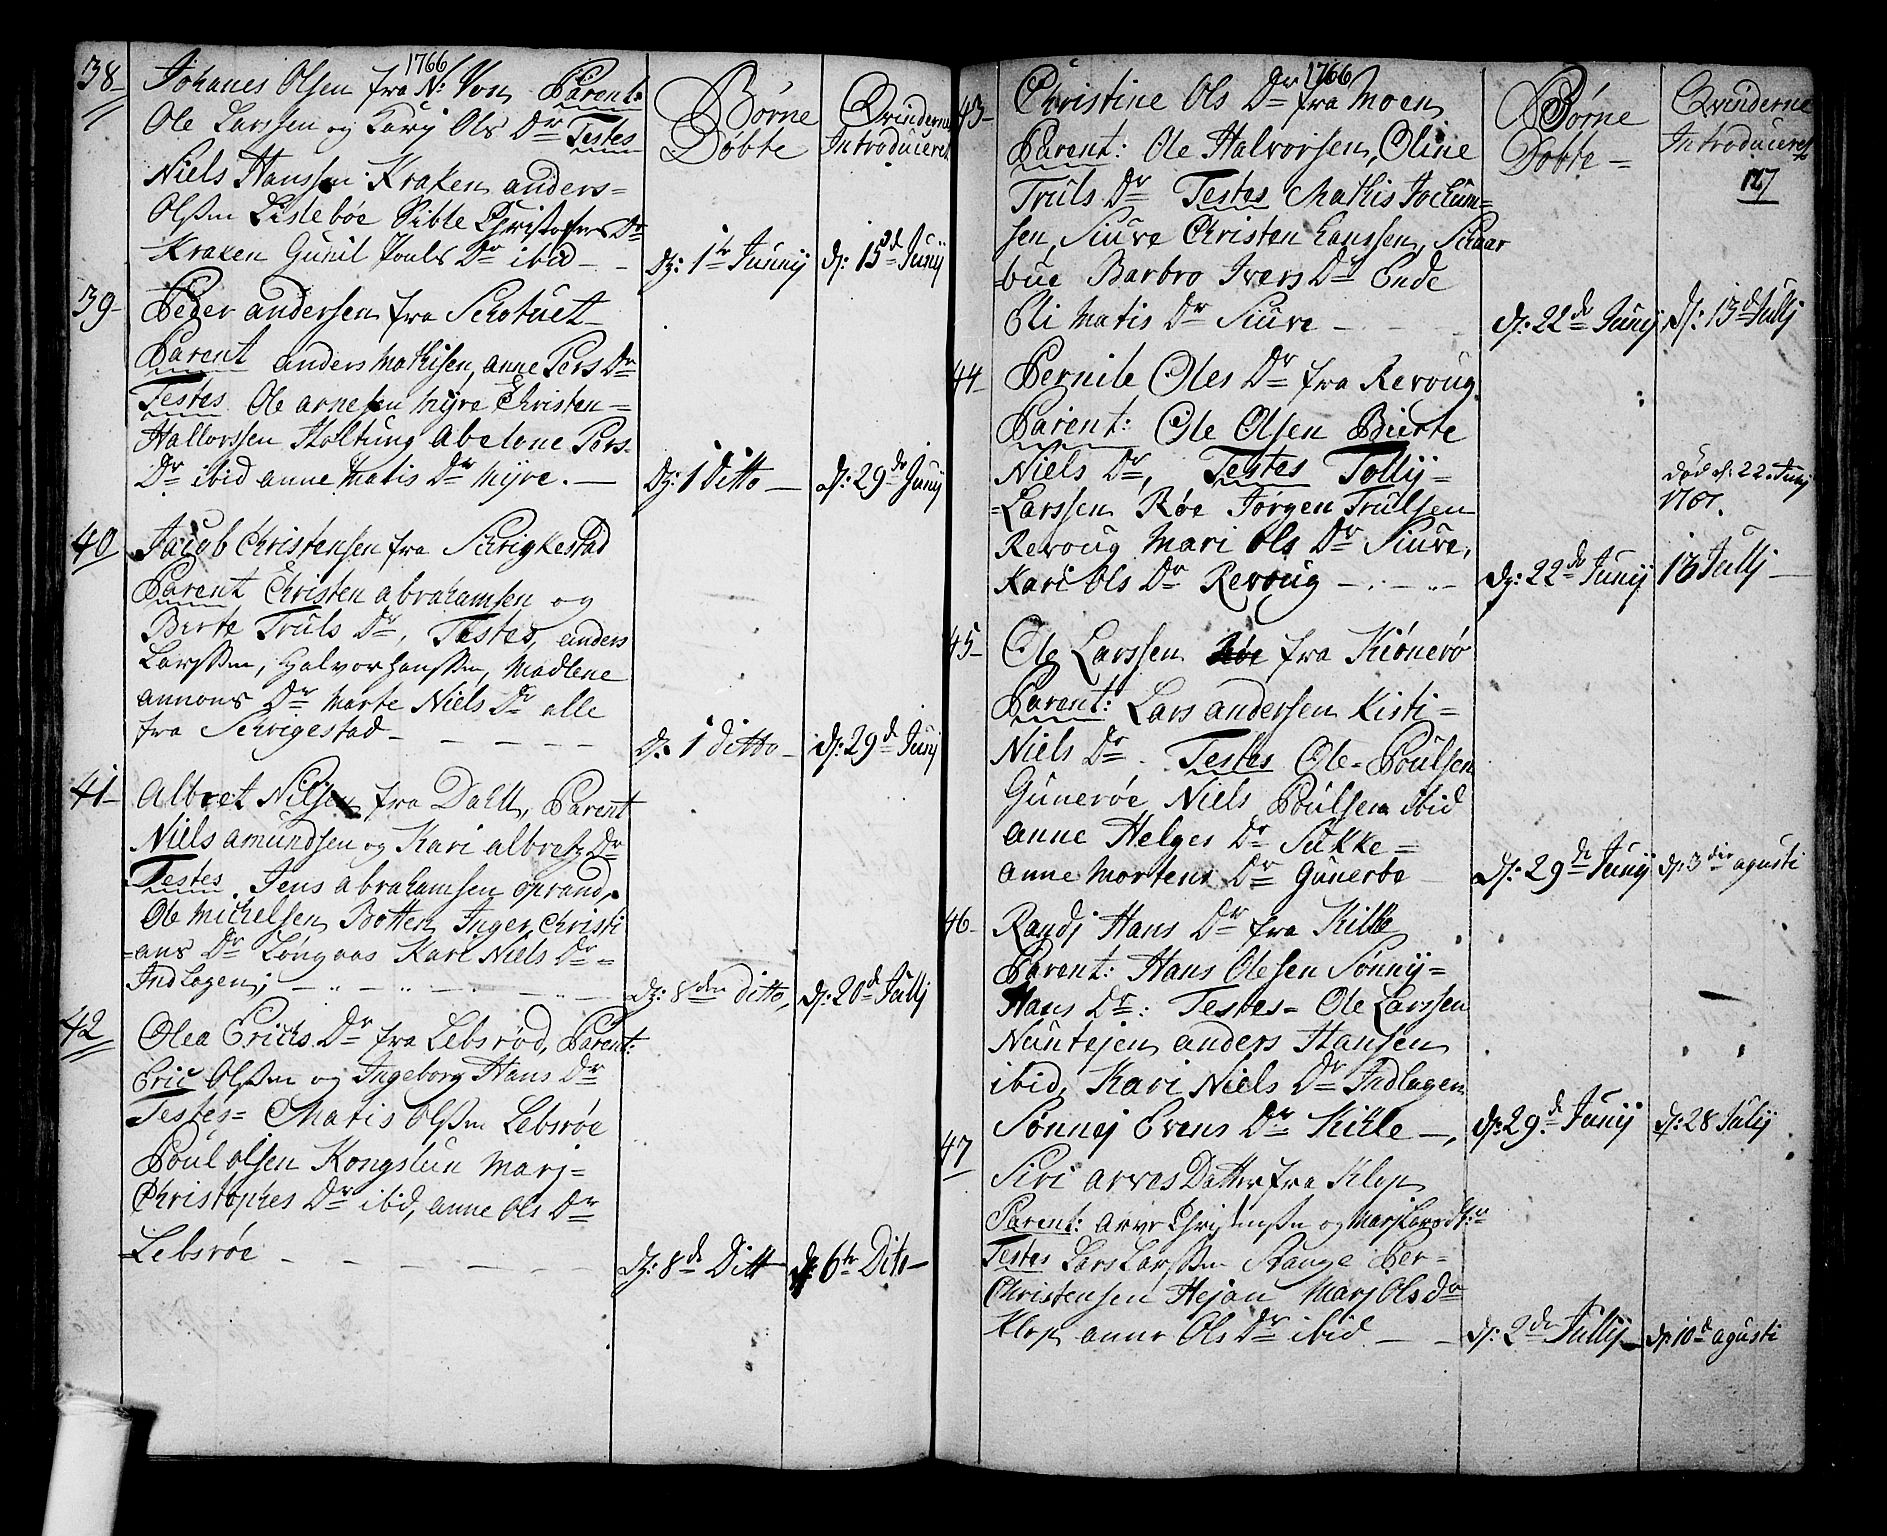 1766
38 Johanes Olsen fra N: Von Parent:
Ole Larssen og Karj Ols Dr Testes
Niels Hanssen Kraken anders=
Olssen Listebøe Sible Christofers Dr
Kraken Gunil Pouls Dr ibid
Børne Døbte
Qvinderne Introduceret
D: 1te Junij d: 15d Junij
39 Peder andersen fra Schotuet
Parent anders Mathisen, anne Pers Dr
Testes Ole arnesen Myre Christen=
Hallorssen Holtung Abelone Pers
Dr ibid anne Matis Dr Myre.
D: 1 Ditto d: 29de Junij
40 Jacob Christensen fra Schrigkestad
Parent Christen abrahamsen og
Birte Truls Dr, Testes, anders
Larssen, Halvor Hanssen, Madlene
annons Dr Marte Niels Dr alle
fra Schrigestad
D: 1 ditto d: 29d Junij
41 Albret Nilsen fra Dahll, Parent
Niels amundsen og Kari albretz Dr
Testes. Jens abrahamsen oprand,
Ole Michelsen Botten Inger Christi
=ans Dr Longaas Kari Niels Dr=
Indlagen;
D: 8den ditto, d: 20d Julij
42 Olea Erichs Dr fra Lebsrød, Parent:
Eric Olssen og Ingeborg Hans Dr
Testes= Matis Olssen Lebsrøe
Poul olsen Kongslun Marj=
Christophes Dr ibid, anne Ols Dr
=Lebsrøe
D: 8de Ditt d: 6te Dito
1766
43 Christine Ols Dr fra Moen
Parent: Ole Halvorsen, Oline
Truls Dr Testes Mathis Jochum=
sen, Siure Christen Hanssen, Schaar
=bue Barbro Ivers Dr Ende
Eli Matis Dr Siure
Børne Døbte
Qvinderne Introduceret
127
d: 22de Junij d: 13d Julij
44 Pernile Oles Dr fra Revoug
Parent: Ole Olsen Bierte
Niels Dr, Testes Tollij=
=Larssen Røe Jørgen Trulsen
Revoug Mari Ols Dr Siure,
Kari Ols Dr Revoug
død d: 22. Junij
1767.
D: 22de Junij 13 Julij
45 Ole Larssen fra Kiønerø
Parent: Lars andersen Kisti=
Niels Dr. Testes Ole=Poulsen
Gunerøe Niels Poulsen ibid
anne Helges Dr Sukke=
anne Mortens Dr Gunerøe
D: 29de Junij d: 3die agusti
46 Randj Hans Dr fra Kihle
Parent: Hans Olesen Sønnij=
Hans Dr: Testes= Ole Larssen
Nuntejen anders Hansen
ibid, Kari Niels Dr Indlagen
Sønnej Evens Dr Kihle
d: 29d Junij d: 28 Julij
47 Siri arves Datter fra Klop
Parent: arve Christenssen og Marj Lars dtr
Testes Lars Larssen Stange Per=
Christensen Hejan Marj Ols dr
Klop anne Ols Dr ibid
d: 2de Julij d: 10d agusti